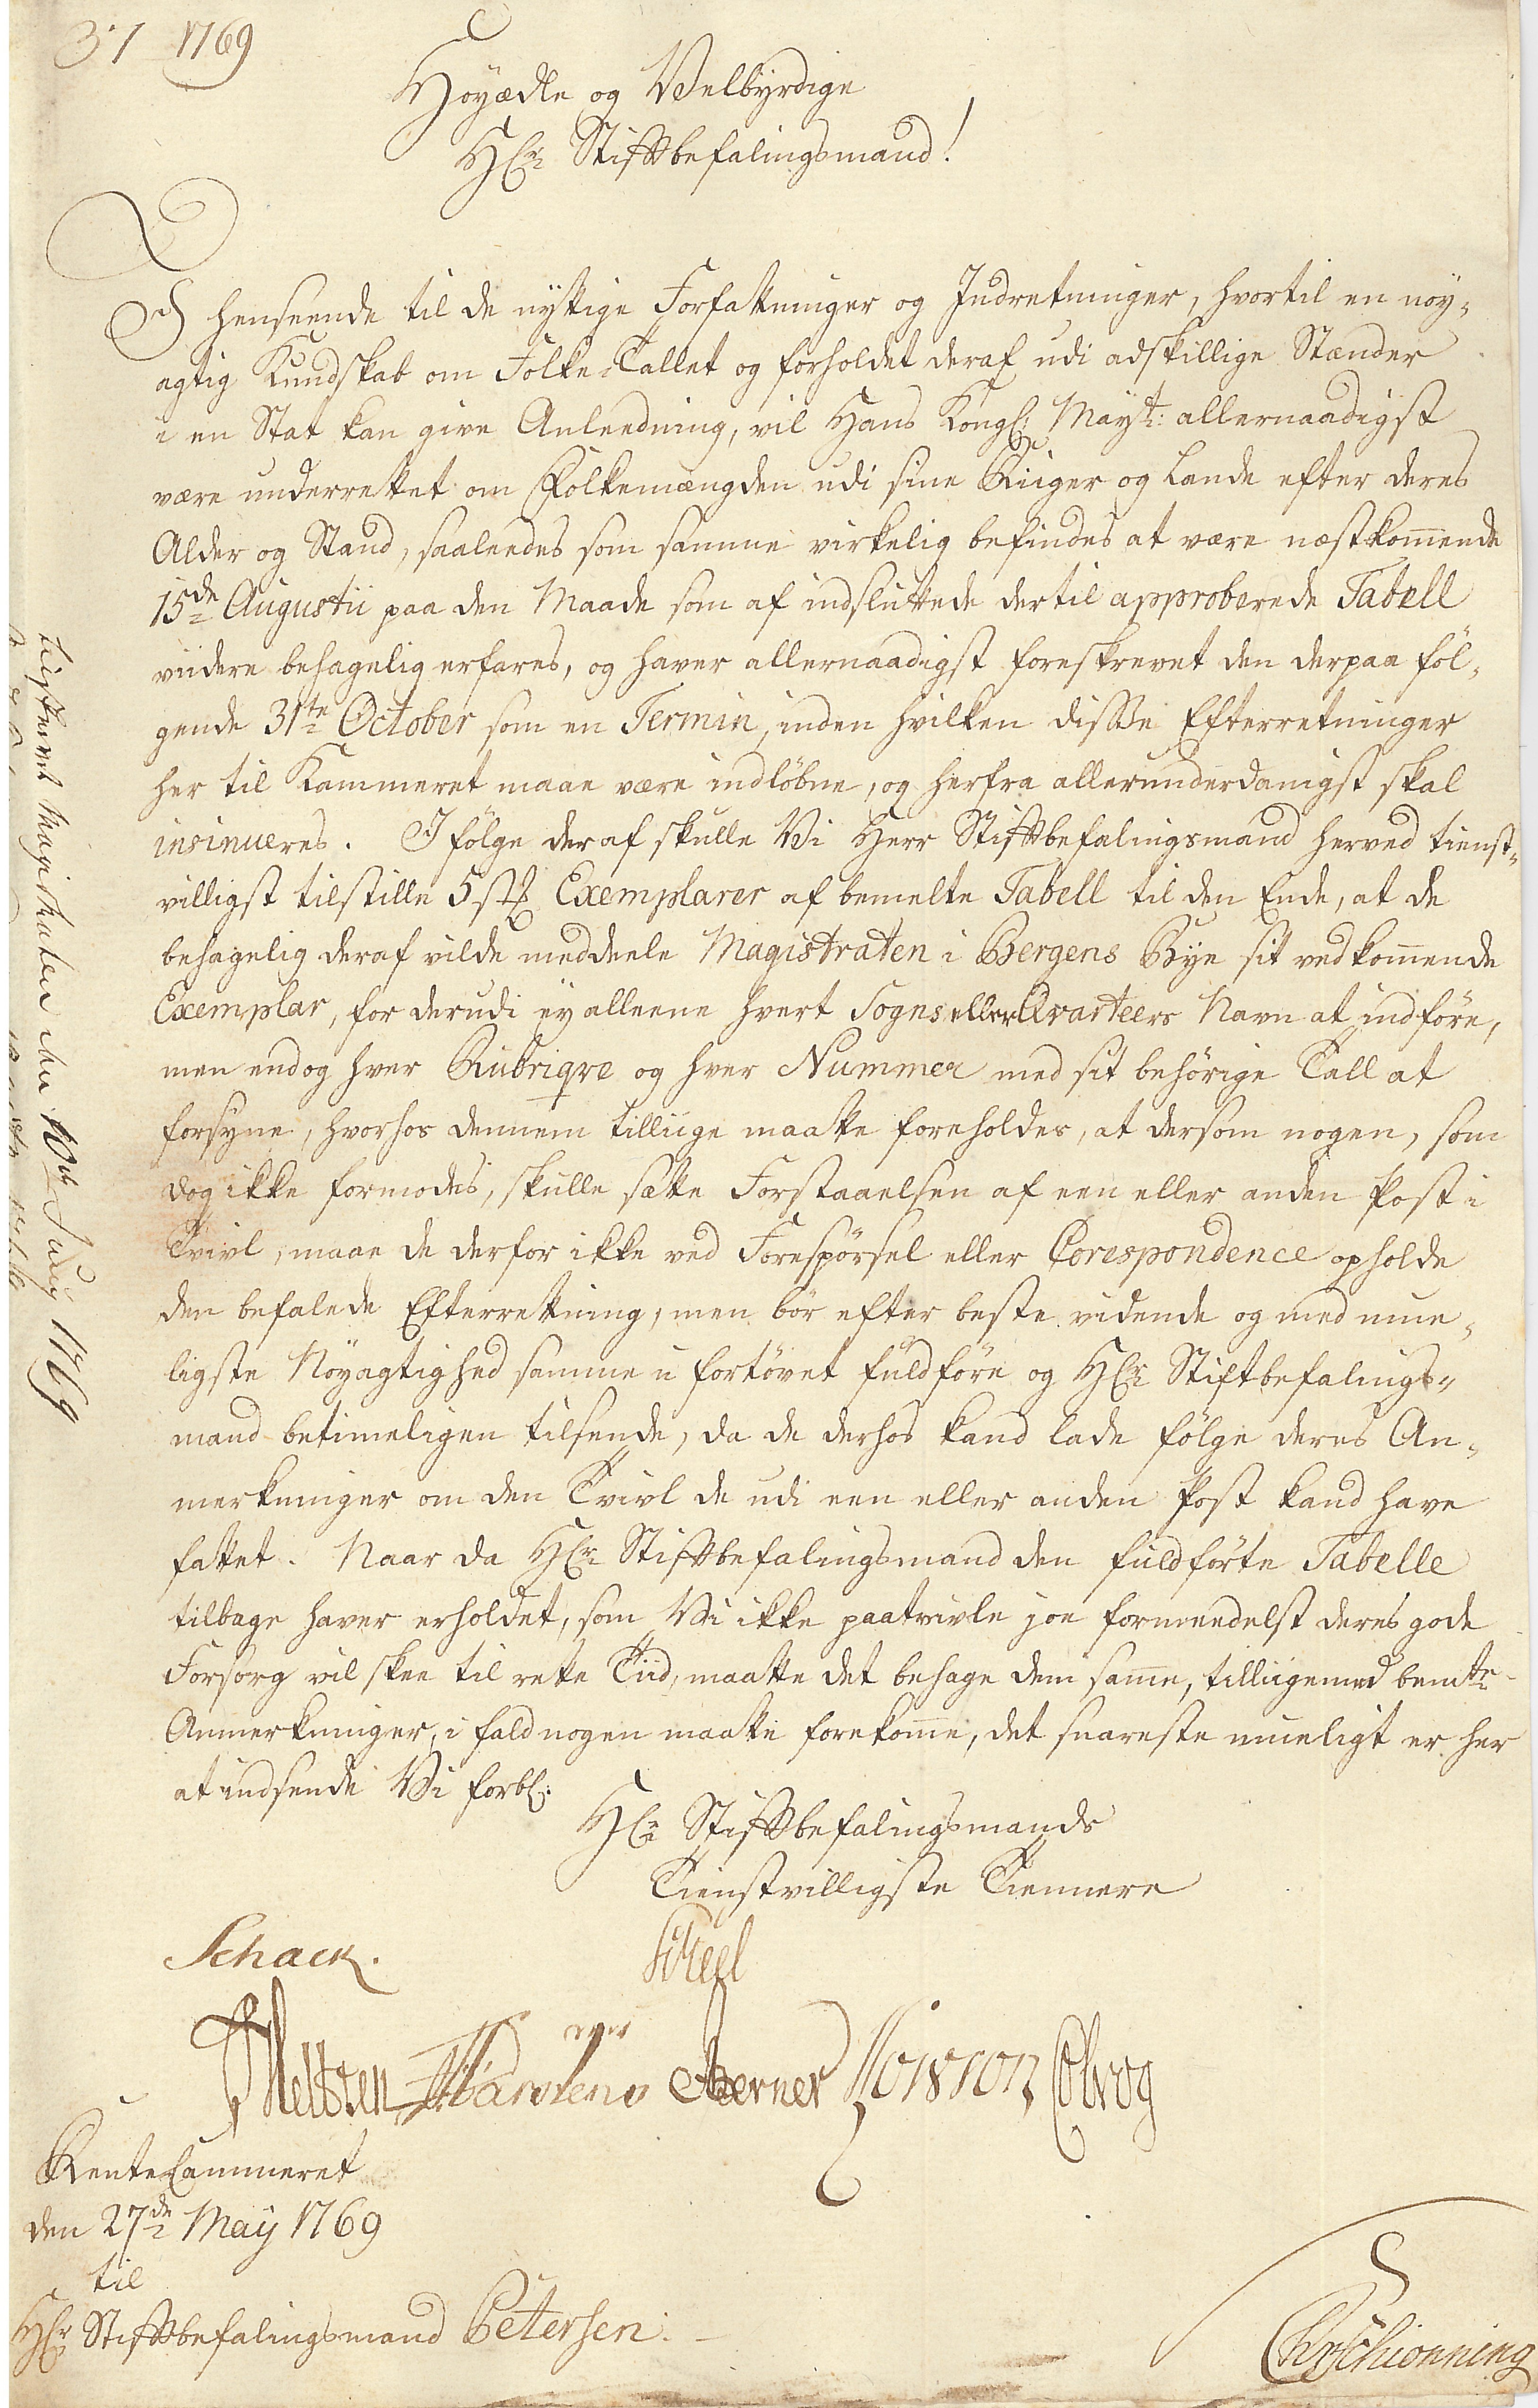 37 1769
Höyædle og Velbyrdige
Hr Stiftbefalingsmand!
I henseende til de nyttige Forfattninger og Indretninger, hvortil en nöy-
agtig Kundskab om Folke-Tallet og forholdet deraf udi adskillige Stænder
i en Stat kan give Anleedning, vil Hans Kongl: Mayt: allernaadigst
være underrettet om Folkemængden udi sine Riiger og Lande efter deres
Alder og Stand, saaleedes som samme virkelig befindes at være næstkommende
15de Augustii paa den Maade som af indsluttede dertil approberede Tabell
viidere behagelig erfares, og haver allernaadigst foreskrevet den derpaa föl-
gende 31te October som en Termin, inden hvilken disse Efterretninger
her til Kammeret maae være indlöbne, og herfra allerunderdanigst skal
insinueres. I fölge deraf skulle Vi Herr Stiftbefalingsmand herved tienst-
villigst tilstille 5 st: Exemplarer af bemelte Tabell til den Ende, at de
behagelig deraf vilde meddeele Magistraten i Bergens Bye sit vedkommende
Exemplar, for derudi ey alleene hvert Sogns eller Qvarteers Navn at indföre,
men endog hver Rubriqve og hver Nummer med sit behörige Tall at
forsyne, hvorhos dennem tilliige maatte foreholdes, at dersom nogen, som
dog ikke formodes, skulle sætte Forstaaelsen af een eller anden Post i
Tvivl, maae de derfor ikke ved Forespörsel eller Corespondence opholde
den befalede Efterretning, men bör efter beste vidende og med mue-
ligste Nöyagtighed samme u fortövet fuldföre og Hr Stiftbefalings-
mand betimeligen tilsende, da de derhos kand lade fölge deres An-
merkninger om den Tvivl de udi een eller anden Post kand have
fattet. Naar da Hr Stiftbefalingsmand den fuldförte Tabelle
tilbage haver erholdet, som Vi ikke paatvivle joe formeedelst deres gode
Forsorg vil skee til rette Tiid, maatte det behage dem samme, tilliigemed bemte
Anmerkninger, i fald nogen maatte forekomme, det snareste mueligt er her
at indsende Vi forbl:
Hr Stiftbefalingsmands
Tienstvilligste Tiennere
Schack.
Skeel
Melsten Karstens Berner
RenteCammeret
den 27de May 1769
til
Hr Stiftbefalingsmand Petersen.
Schionning
tilskrevet Magistraten den 10de 1769